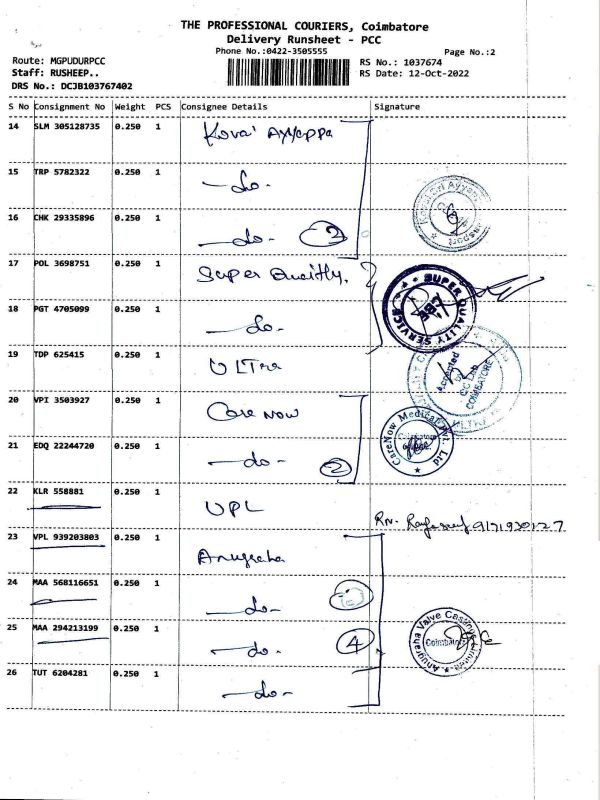 THE PROFESSIONAL COURIERS, Coimbatore
Delivery Runsheet - PCC
Phone No.:0422-3505555
Page No.:2
Route: MGPUDURPCC
RS No.: 1037674
Staff: RUSHEEP..
RS Date: 12-Oct-2022
DRS No.: DCJB103767402
S No Consignment No Weight PCS Consignee Details Signature
14 SLM 305128735 0.250 1 Kovai Ayyappa
15 TRP 5782322 0.250 1 -do-
16 CHK 29335896 0.250 1 -do- 3
17 POL 3698751 0.250 1 Super
18 PGT 4705099 0.250 1 -do-
SUPER QUALITY SERVICE
CBE
19 TDP 625415 0.250 1 ULTra
Accepted
COIMBATORE
20 VPI 3503927 0.250 1 Care Now
CareNow Medical Pvt. Ltd
Coimbatore
21 EDQ 22244720 0.250 1 -do- 2
22 KLR 558881 0.250 1 UPL
23 VPL 939203803 0.250 1 Anugraha
24 MAA 568116651 0.250 1 -do-
25 MAA 294213199 0.250 1 -do- 4
Anugraha Valve Castings
Coimbatore
26 TUT 6204281 0.250 1 -do-